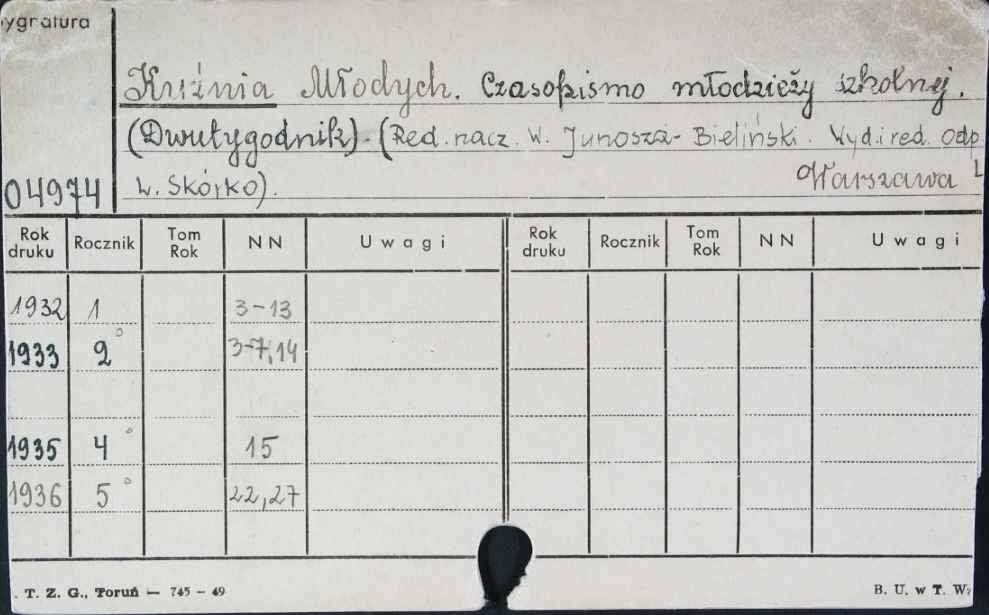 ygratura
Kuźnia Młodych. Czasopismo młodzieży szkolnej.
(Dwutygodnik) (Red. nacz. W. Junosza-Bieliński. Wyd. i red. odp.
04974 W. Skórko). Warszawa
Rok druku Rocznik Tom Rok NN Uwagi Rok druku Rocznik Tom Rok NN Uwagi
1932 1 3-13
1933 2° 3-7, 14
1935 4° 15
1936 5° 22, 27
T. Z. G., Toruń — 745 - 49 B. U. w T. W.